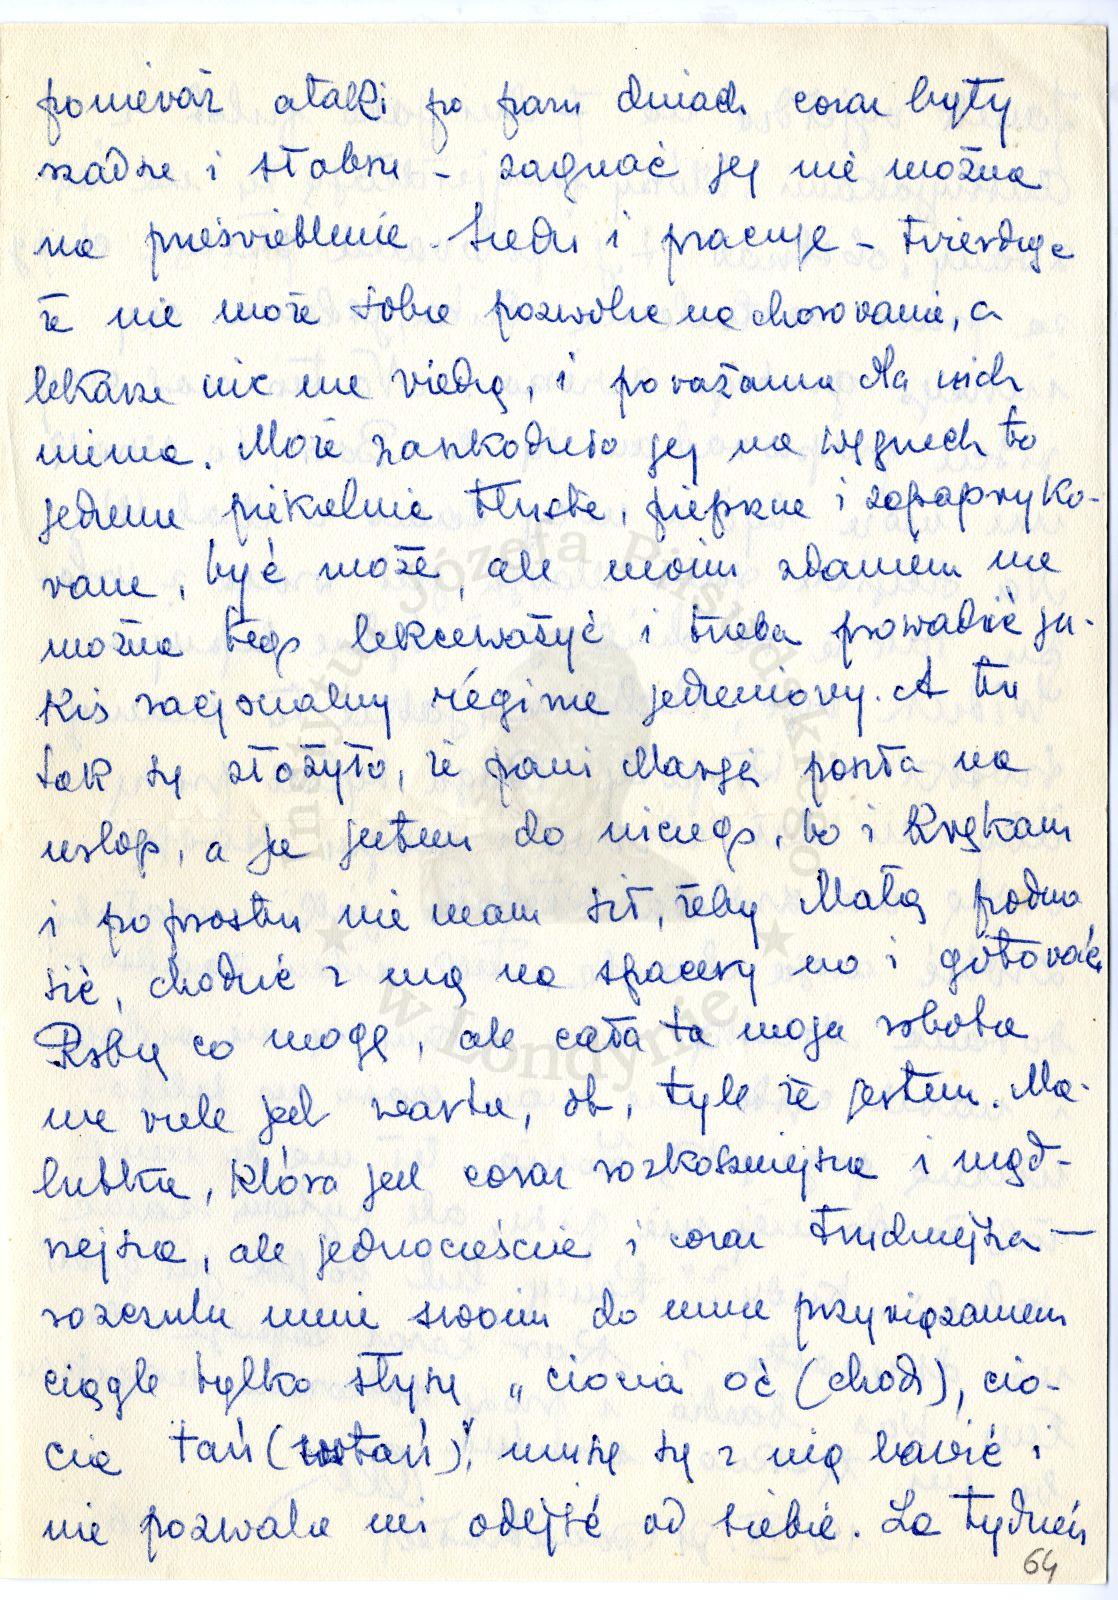 ponieważ ataki po paru dniach coraz były
rzadsze i słabsze – zagnać jej nie można
na prześwietlenie. Siedzi i pracuje – twierdząc
że nie może sobie pozwolić na chorowanie, a
lekarze nic nie wiedzą, i poważania dla nich
niema. Może zaszkodziło jej na Węgrzech to
jedzenie piekielnie tłuste, pieprzne i zapapryko-
wane, być może, ale moim zdaniem nie
można tego lekceważyć i trzeba prowadzić ja-
kiś racjonalny régime jedzeniowy. A tu
tak się złożyło, że pani Marysia poszła na
urlop, a ja jestem do niczego, bo i kręka​m
i poprostu nie mam sił, żeby Małą podno
sić, chodzić z nią na spacery no i gotować.
Robię co mogę, ale cała ta moja robota
nie wiele jest warta, ot, tyle że jestem. Ma-
lutka, która jest coraz rozkoszniejsza i mąd-
rzejsza, ale jednocześnie i coraz trudniejsza —
rozczula mnie swoim do mnie przywiązaniem
ciągle tylko słyszę „ciocia oć (chodź), cio-
cia tań (wstań)”, muszę się z nią bawić i
nie pozwala mi odejść od siebie. Za tydzień
64
Instytut Józefa Piłsudskiego
w Londynie